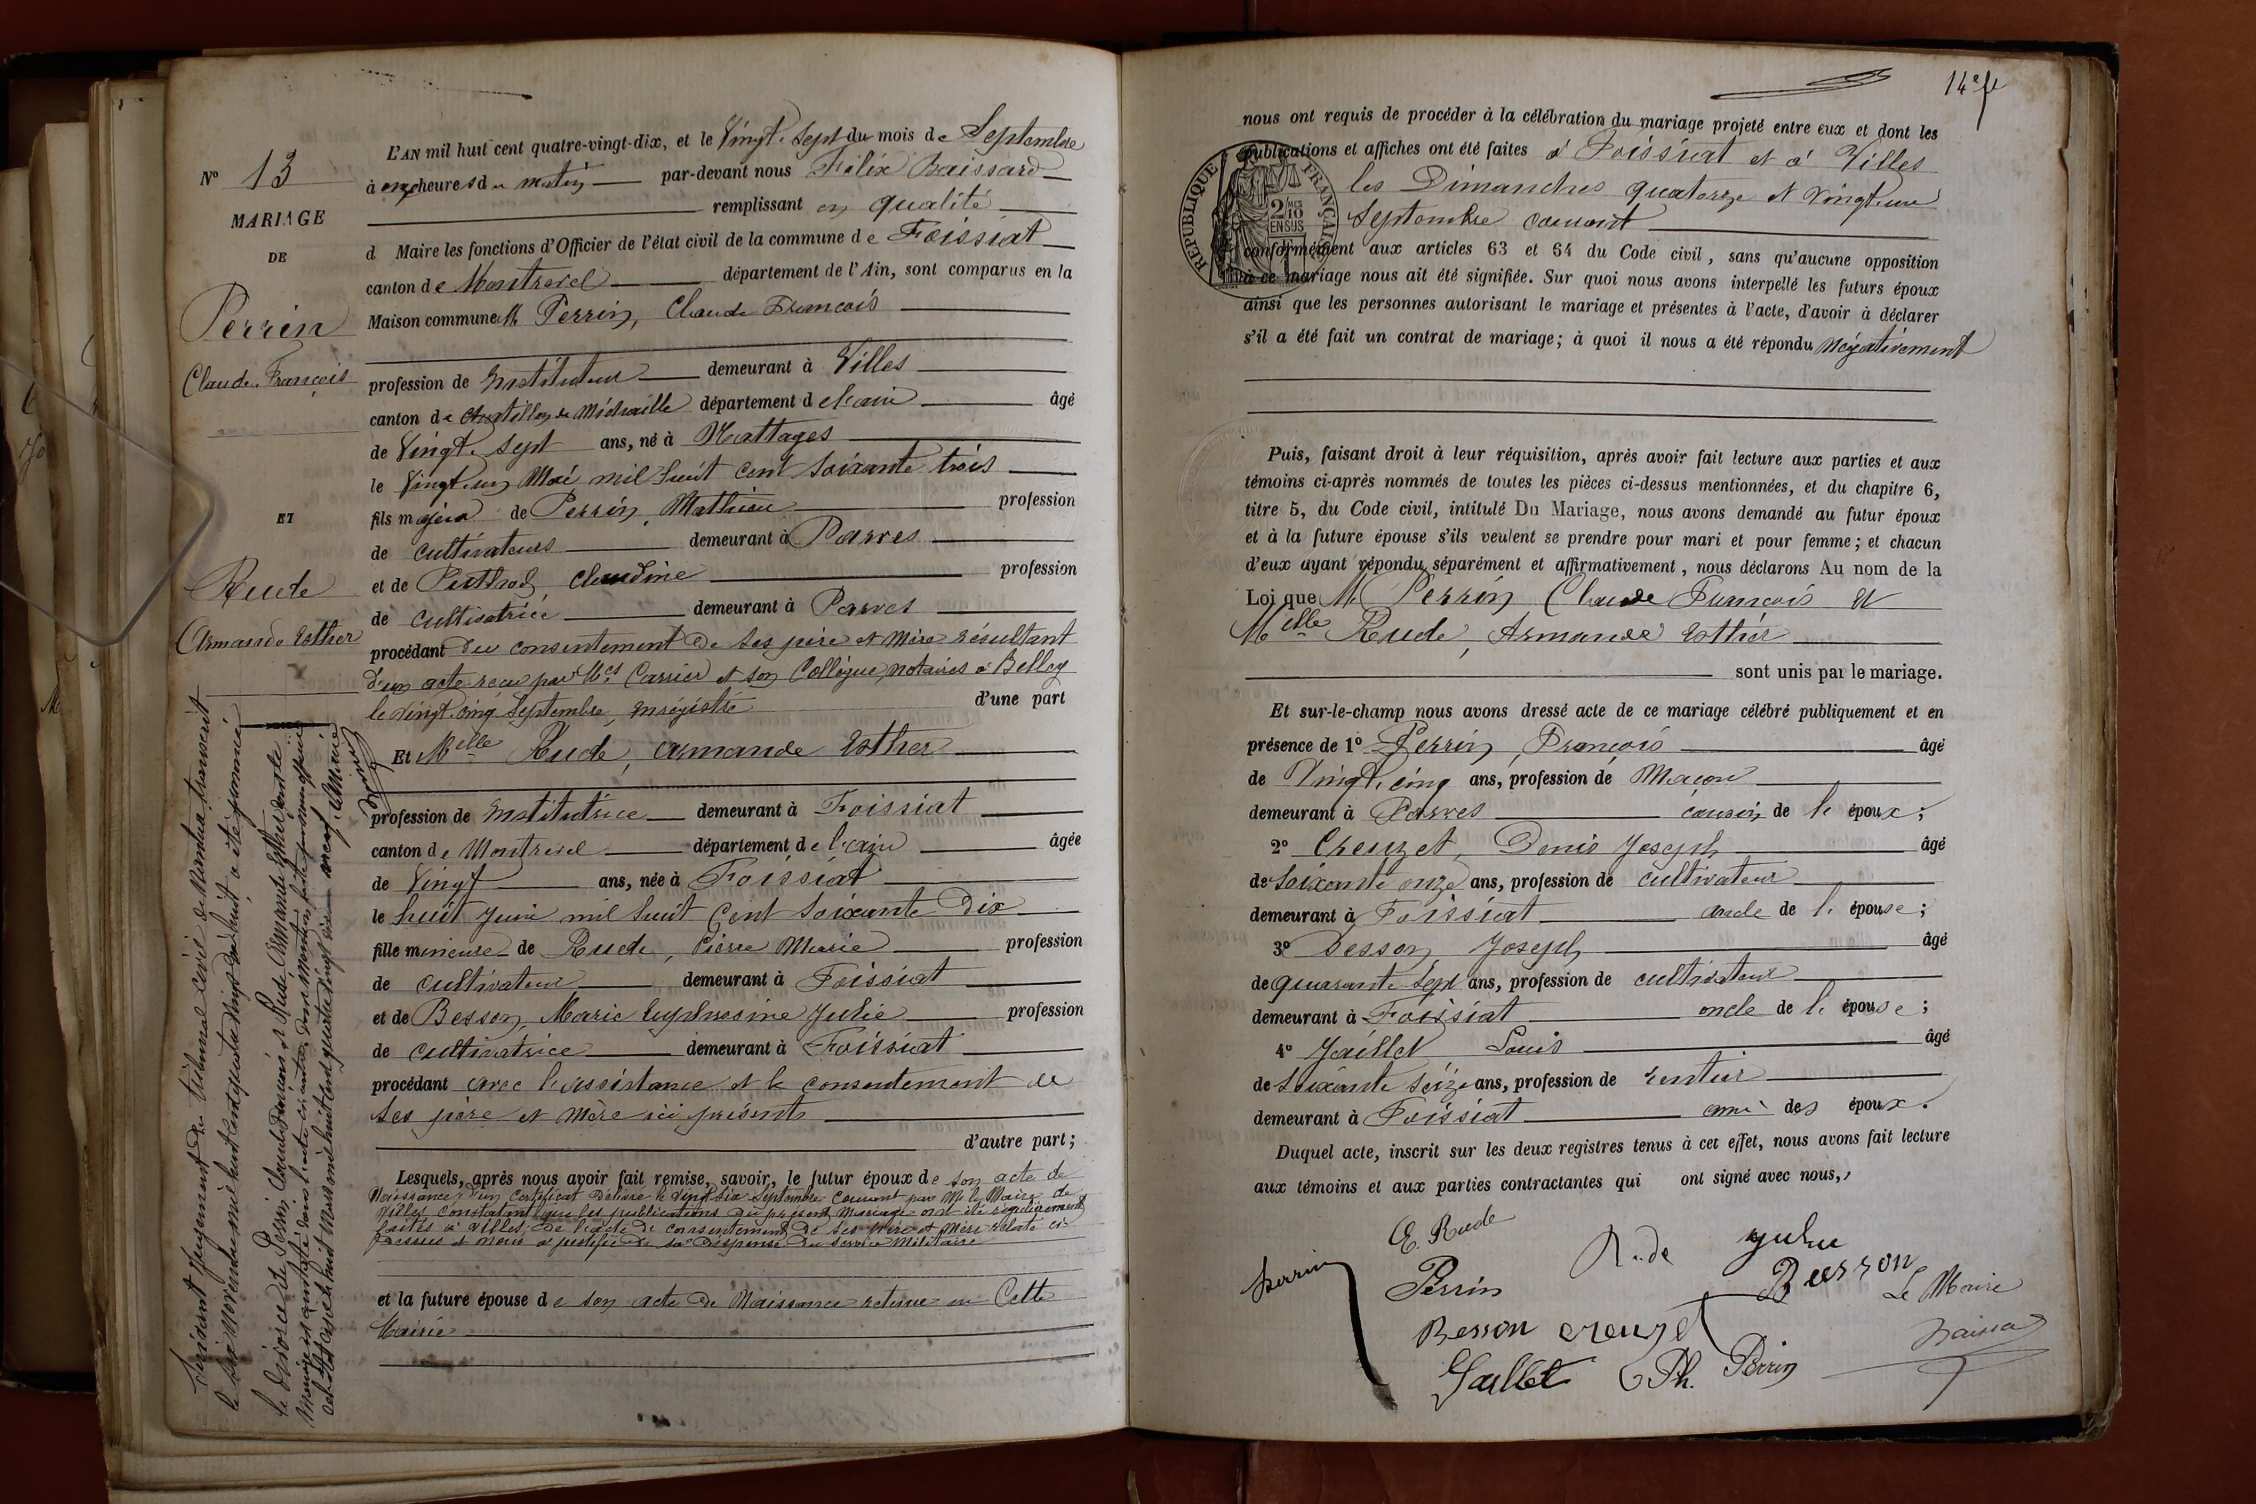 N° 13
MARIAGE
DE
Perrin
Claude François
ET
Rude
Armande Esther
Suivant jugement du tribunal civil de Nantua transcrit
le dix novembre mil huit cent quatre vingt dix huit a été prononcé
le divorce de Perrin Claude François & Rude Armande Esther dont le
mariage est constaté dans l'acte ci-contre. Dont Mention faite par nous
L'AN mil huit cent quatre-vingt-dix, et le Vingt-sept du mois de Septembre
à onze heures du matin par-devant nous Félix Baissard
remplissant en qualité
d Maire les fonctions d'Officier de l'état civil de la commune de Foissiat
canton de Montrevel département de l'Ain, sont comparus en la
Maison commune M. Perrin, Claude François
profession de Instituteur demeurant à Villes
canton de Chatillon de Michaille département de l'ain âgé
de Vingt-sept ans, né à
le Vingt-un Mai mil huit cent soixante trois
fils majeur de Perrin, Mathieu profession
de cultivateurs demeurant à Parves
et de Claudine profession
de cultivatrice demeurant à Parves
procédant du consentement de ses père et mère résultant
d'un acte reçu par Mes Carrier et son Collègue, notaires à Belley
le vingt-cinq Septembre, enregistré d'une part
Et Melle Rude, Armande Esther
profession de Institutrice demeurant à Foissiat
canton de Montrevel département de l'ain âgée
de Vingt ans, née à Foissiat
le huit Juin mil huit Cent Soixante Dix
fille mineure de Rude, Pierre Marie profession
de cultivateur demeurant à Foissiat
et de Besson, Marie Euphrosine Julie profession
de cultivatrice demeurant à Foissiat
procédant avec l'assistance et le consentement de
ses père et mère ici présents
d'autre part;
Lesquels, après nous avoir fait remise, savoir, le futur époux de son acte de
Naissance, d'un certificat délivré le vingt six Septembre courant par Mr le Maire de
Villes constatant que les publications du présent mariage ont été régulièrement
faites à Villes, de l'acte de consentement de ses père et mère relaté ci-
dessus et nous a justifié de sa dispense du service militaire
et la future épouse de son acte de Naissance retenue en Cette
Mairie
14e f
nous ont requis de procéder à la célébration du mariage projeté entre eux et dont les
publications et affiches ont été faites à Foissiat et à Villes
les Dimanches quatorze et vingt-un
Septembre courant
RÉPUBLIQUE FRANÇAISE
2/10 EN SUS
conformément aux articles 63 et 64 du Code civil, sans qu'aucune opposition
à ce mariage nous ait été signifiée. Sur quoi nous avons interpellé les futurs époux
ainsi que les personnes autorisant le mariage et présentes à l'acte, d'avoir à déclarer
s'il a été fait un contrat de mariage; à quoi il nous a été répondu négativement
Puis, faisant droit à leur réquisition, après avoir fait lecture aux parties et aux
témoins ci-après nommés de toutes les pièces ci-dessus mentionnées, et du chapitre 6,
titre 5, du Code civil, intitulé Du Mariage, nous avons demandé au futur époux
et à la future épouse s'ils veulent se prendre pour mari et pour femme; et chacun
d'eux ayant répondu séparément et affirmativement, nous déclarons Au nom de la
Loi que M. Perrin Claude François et
Melle Rude, Armande Esther
sont unis par le mariage.
Et sur-le-champ nous avons dressé acte de ce mariage célébré publiquement et en
présence de 1° Perrin, François âgé
de Vingt-cinq ans, profession de Maçon
demeurant à Parves cousin de l' époux;
2° Creuzet, Denis Joseph âgé
de soixante onze ans, profession de cultivateur
demeurant à Foissiat oncle de l' épouse;
3° Besson, Joseph âgé
de quarante sept ans, profession de cultivateur
demeurant à Foissiat oncle de l' épouse;
4° Jaillet Louis âgé
de soixante seize ans, profession de rentier
demeurant à Foissiat ami des époux.
Duquel acte, inscrit sur les deux registres tenus à cet effet, nous avons fait lecture
aux témoins et aux parties contractantes qui ont signé avec nous,
E. Rude
Perrin
Perrin
Rude
Julie
Besson
Le Maire
Besson
creuzet
Baissard
Jaillet
Ph. Perrin